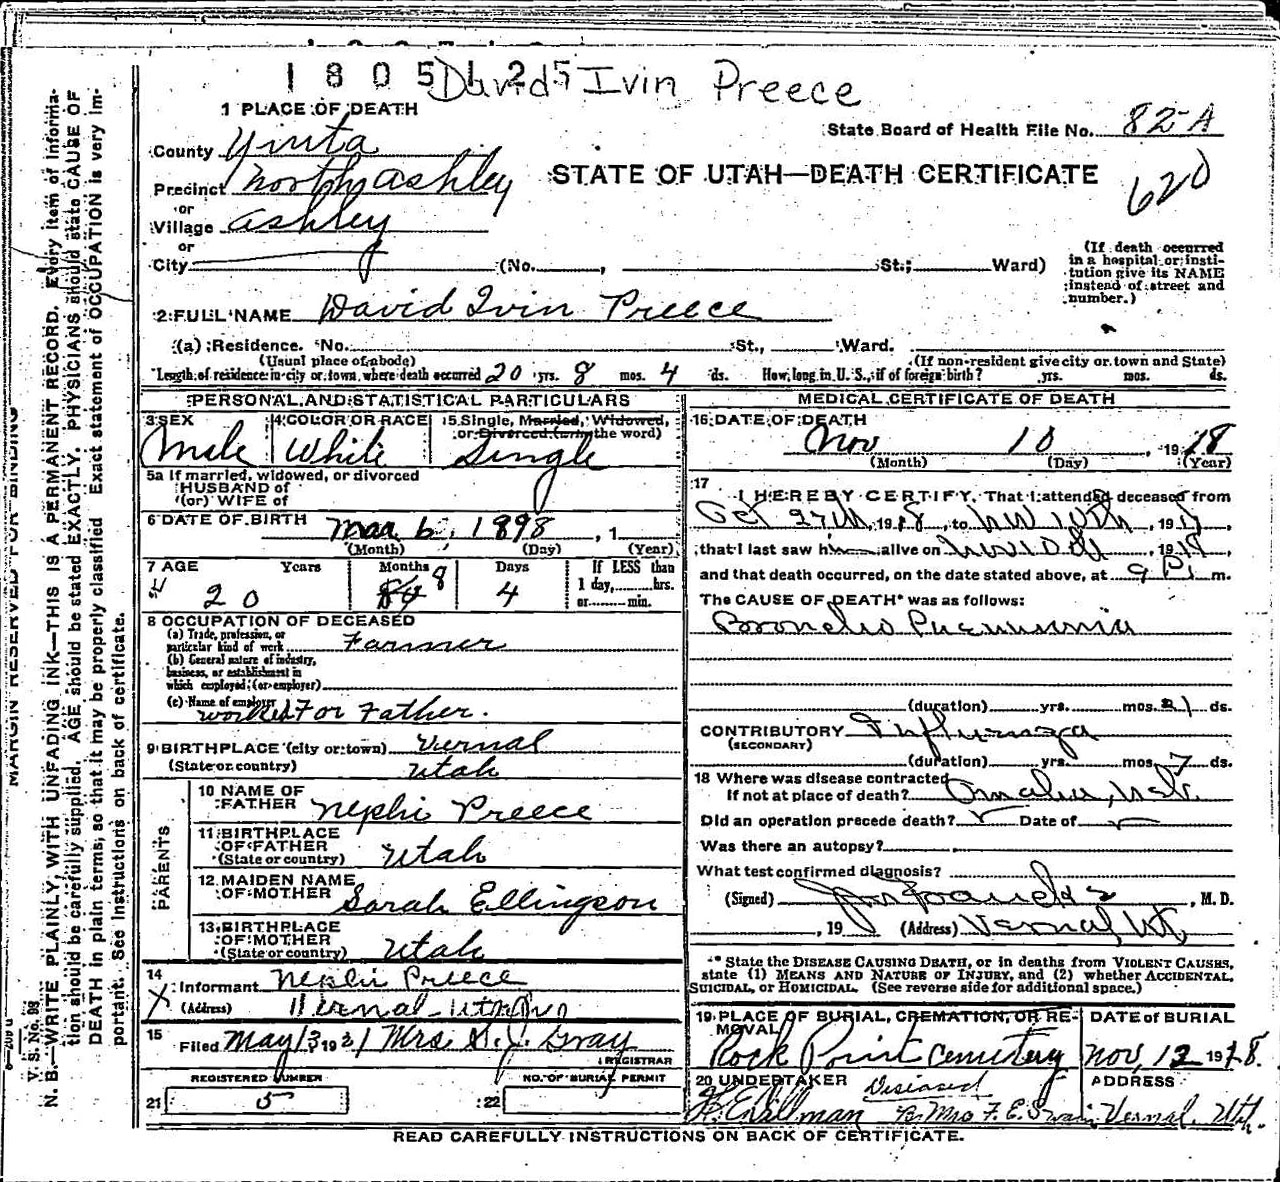 1805125
David Ivin Preece
1 PLACE OF DEATH
State Board of Health File No. 82-A
620
County Yinta
Precinct North Ashley
STATE OF UTAH—DEATH CERTIFICATE
or
Village Ashley
or
City (No. , St.; Ward)
(If death occurred in a hospital or institution give its NAME instead of street and number.)
2 FULL NAME David Ivin Preece
(a) Residence. No. St., Ward.
(Usual place of abode) (If non-resident give city or town and State)
Length of residence in city or town where death occurred 20 yrs. 8 mos. 4 ds. How long in U. S., if of foreign birth? yrs. mos. ds.
PERSONAL AND STATISTICAL PARTICULARS
3 SEX
Male
4 COLOR OR RACE
White
5 Single, Married, Widowed, or Divorced (write the word)
Single
5a If married, widowed, or divorced
HUSBAND of
(or) WIFE of
6 DATE OF BIRTH Mar 6, 1898, 1
(Month) (Day) (Year)
7 AGE Years Months Days If LESS than
20 8 4 1 day, hrs.
or min.
8 OCCUPATION OF DECEASED
(a) Trade, profession, or
particular kind of work Farmer
(b) General nature of industry,
business, or establishment in
which employed (or employer)
(c) Name of employer
worked For Father.
9 BIRTHPLACE (city or town) Vernal
(State or country) Utah
PARENTS
10 NAME OF
FATHER Nephi Preece
11 BIRTHPLACE
OF FATHER
(State or country) Utah
12 MAIDEN NAME
OF MOTHER Sarah Ellingson
13 BIRTHPLACE
OF MOTHER
(State or country) Utah
14
Informant Nephi Preece
(Address) Vernal Utah
15
Filed May 13 1921 Mrs. H. J. Gray
REGISTRAR
REGISTERED NUMBER
21 5
NO. OF BURIAL PERMIT
22
MEDICAL CERTIFICATE OF DEATH
16 DATE OF DEATH
Nov 10, 1918
(Month) (Day) (Year)
17
I HEREBY CERTIFY, That I attended deceased from
Oct 27th, 1918, to Nov 10th, 1918,
that I last saw him alive on Nov 10th, 1918,
and that death occurred, on the date stated above, at 9 P. m.
The CAUSE OF DEATH* was as follows:
Broncho Pneumonia
(duration) yrs. mos. 21 ds.
CONTRIBUTORY Influenza
(SECONDARY)
(duration) yrs. mos. 7 ds.
18 Where was disease contracted
If not at place of death? Omaha, Neb.
Did an operation precede death? Date of
Was there an autopsy?
What test confirmed diagnosis?
(Signed) , M. D.
, 19 (Address) Vernal, Ut,
* State the DISEASE CAUSING DEATH, or in deaths from VIOLENT CAUSES,
state (1) MEANS AND NATURE OF INJURY, and (2) whether ACCIDENTAL,
SUICIDAL, or HOMICIDAL. (See reverse side for additional space.)
19 PLACE OF BURIAL, CREMATION, OR REMOVAL
Rock Point Cemetery
DATE of BURIAL
Nov, 12 1918.
20 UNDERTAKER Diseased
ADDRESS
Hillman Per Mrs F. E. Swain Vernal, Utah.
READ CAREFULLY INSTRUCTIONS ON BACK OF CERTIFICATE.
MARGIN RESERVED FOR BINDING
V. S. No. 98
N. B.—WRITE PLAINLY, WITH UNFADING INK—THIS IS A PERMANENT RECORD. Every item of informa-
tion should be carefully supplied. AGE should be stated EXACTLY. PHYSICIANS should state CAUSE OF
DEATH in plain terms, so that it may be properly classified. Exact statement of OCCUPATION is very im-
portant. See instructions on back of certificate.